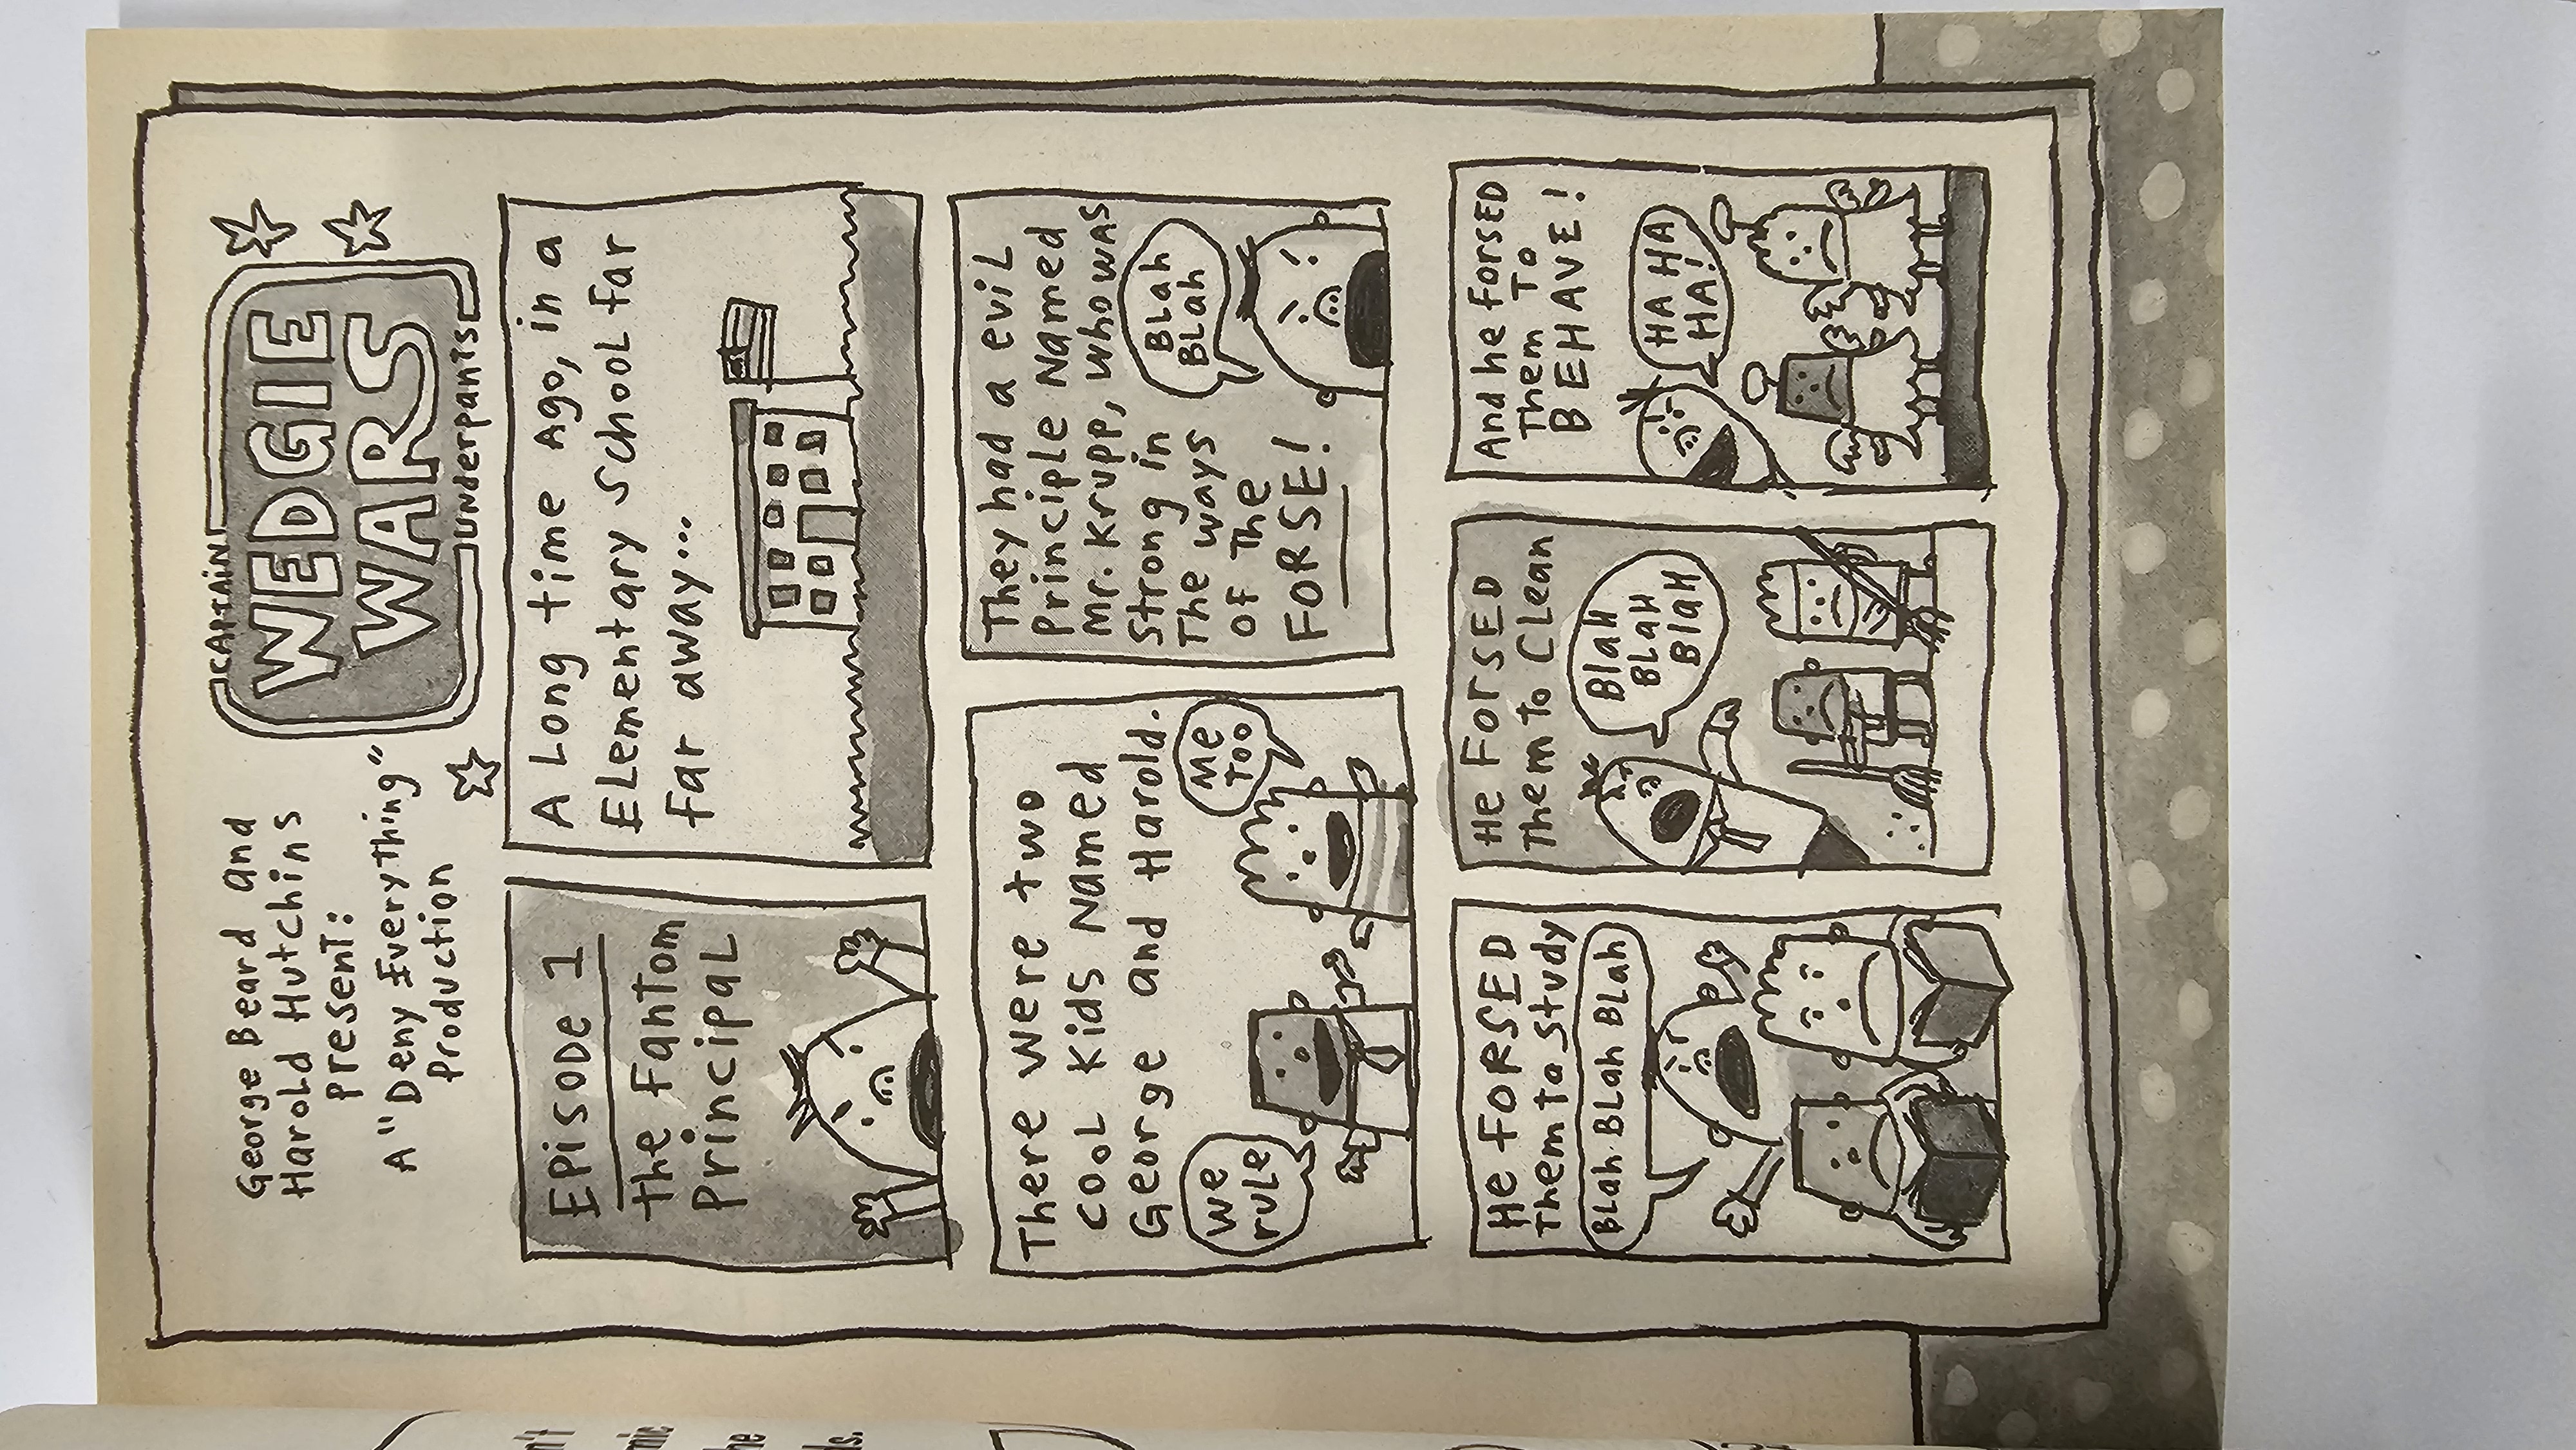 George Beard and
Harold Hutchins
Present:
A "Deny Everything"
Production
CAPTAIN
WEDGIE
WARS
UNDERPANTS
EPISODE 1
the Fantom
Principal
A Long time Ago, in a
Elementary School far
far away...
There were two
cool Kids Named
George and Harold.
We
rule
Me
Too
They had a evil
Principle Named
Mr. Krupp, who was
Strong in
The ways
of The
FORSE!
BLah
BLah
He FORSED
Them to Study
BLah BLah BLah
He ForSED
Them to Clean
BlaH
BLaH
BlaH
And he forSED
Them To
BEHAVE!
HA HA
HA!
n't
mic
he
ds.